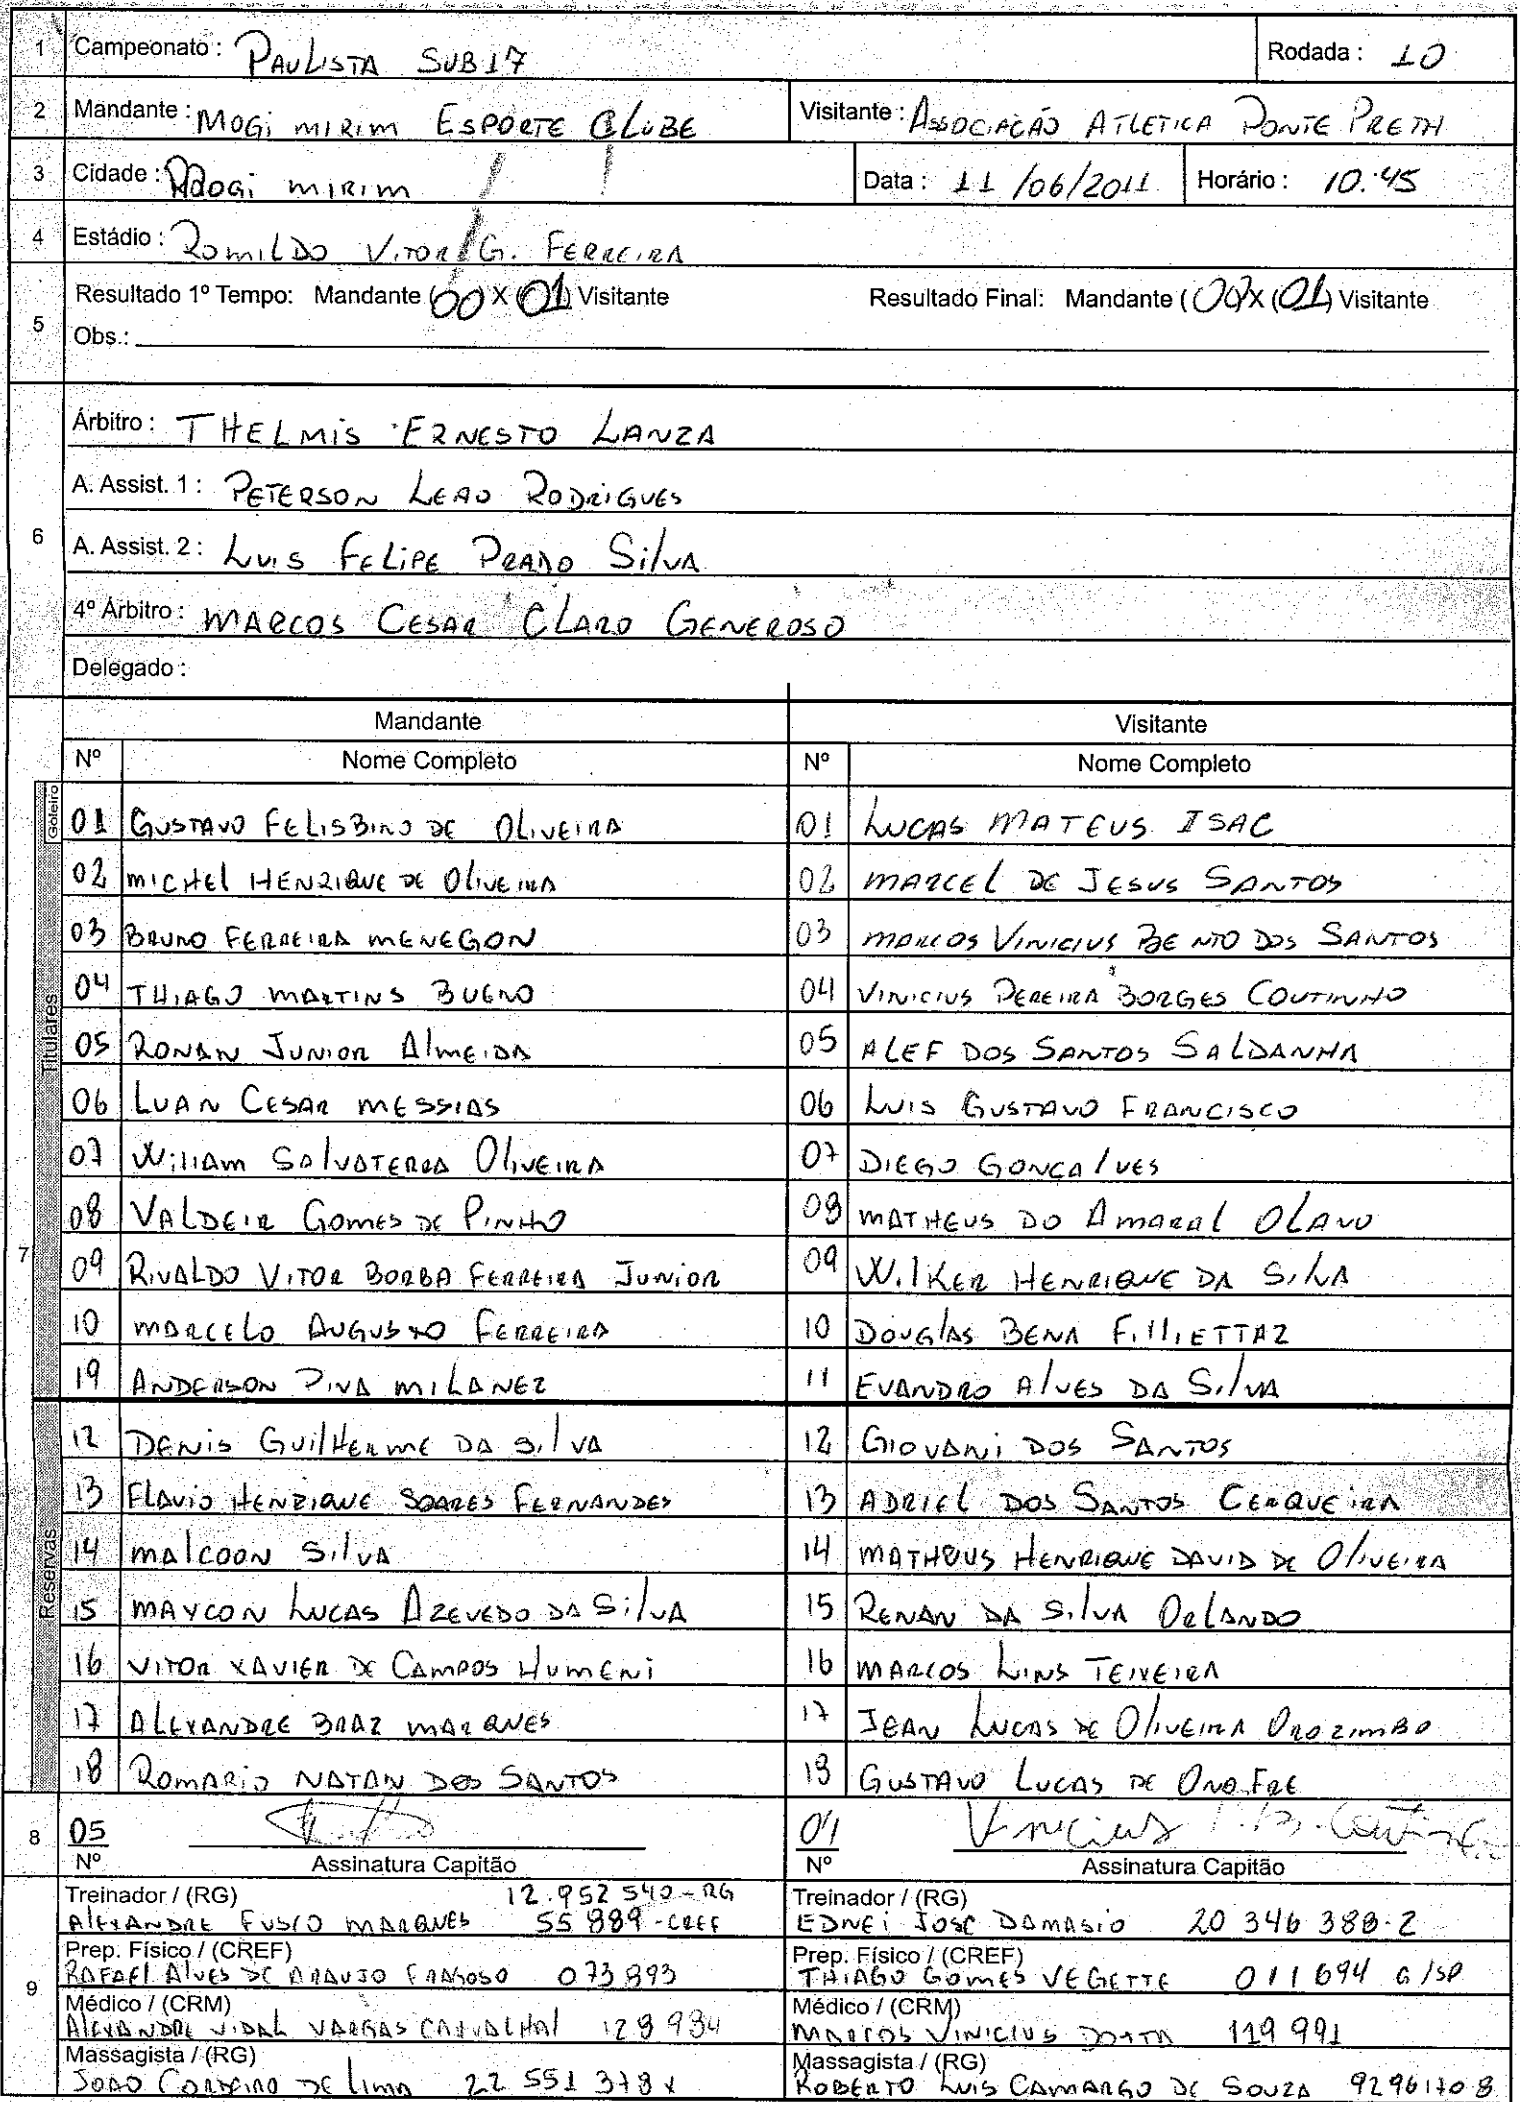 1 Campeonato : PAULISTA SUB 17 Rodada : 10
2 Mandante : MOGI MIRIM ESPORTE CLUBE Visitante : ASSOCIAÇÃO ATLETICA PONTE PRETA
3 Cidade : MOGI MIRIM Data : 11/06/2011 Horário : 10:45
4 Estádio : ROMILDO VITOR G. FERREIRA
5 Resultado 1º Tempo: Mandante (00) X (01) Visitante Resultado Final: Mandante (00) X (01) Visitante
Obs.:
6 Árbitro : THELMIS ERNESTO LANZA
A. Assist. 1 : PETERSON LEAO RODRIGUES
A. Assist. 2 : LUIS FELIPE PRADO SILVA
4º Árbitro : MARCOS CESAR CLARO GENEROSO
Delegado :
Mandante Visitante
Nº Nome Completo Nº Nome Completo
7 Titulares Goleiro
01 GUSTAVO FELISBINO DE OLIVEIRA 01 LUCAS MATEUS ISAC
02 MICHEL HENRIQUE DE OLIVEIRA 02 MARCEL DE JESUS SANTOS
03 BRUNO FERREIRA MENEGON 03 MARCOS VINICIUS BENTO DOS SANTOS
04 THIAGO MARTINS BUENO 04 VINICIUS PEREIRA BORGES COUTINHO
05 RONAN JUNIOR ALMEIDA 05 ALEF DOS SANTOS SALDANHA
06 LUAN CESAR MESSIAS 06 LUIS GUSTAVO FRANCISCO
07 WILLIAM SALVATERRA OLIVEIRA 07 DIEGO GONCALVES
08 VALDEIR GOMES DE PINHO 08 MATHEUS DO AMARAL OLAVO
09 RIVALDO VITOR BORBA FERREIRA JUNIOR 09 WILKER HENRIQUE DA SILVA
10 MARCELO AUGUSTO FERREIRA 10 DOUGLAS BENA FILLIETTAZ
19 ANDERSON PIVA MILANEZ 11 EVANDRO ALVES DA SILVA
Reservas
12 DENIS GUILHERME DA SILVA 12 GIOVANI DOS SANTOS
13 FLAVIO HENRIQUE SOARES FERNANDES 13 ADRIEL DOS SANTOS CERQUEIRA
14 MALCOON SILVA 14 MATHEUS HENRIQUE DAVID DE OLIVEIRA
15 MAYCON LUCAS AZEVEDO DA SILVA 15 RENAN DA SILVA ORLANDO
16 VITOR XAVIER DE CAMPOS HUMENI 16 MARCOS LINS TEIXEIRA
17 ALEXANDRE BRAZ MARQUES 17 JEAN LUCAS DE OLIVEIRA OROZIMBO
18 ROMARIO NATAN DOS SANTOS 18 GUSTAVO LUCAS DE ONOFRE
8 05 04 Vinicius P. B. Coutinho
Nº Assinatura Capitão Nº Assinatura Capitão
9 Treinador / (RG) 12.952 540-RG Treinador / (RG)
ALEXANDRE FUSCO MARQUES 55 889-CREF EDNEI JOSE DAMASIO 20 346 388-2
Prep. Físico / (CREF) Prep. Físico / (CREF)
RAFAEL ALVES DE ARAUJO FRAGOSO 073 893 THIAGO GOMES VEGETTE 011694 G/SP
Médico / (CRM) Médico / (CRM)
ALEXANDRE VIDAL VARGAS CARVALHAL 128 984 MARCOS VINICIUS 119 991
Massagista / (RG) Massagista / (RG)
JOAO CORDEIRO DE LIMA 22 551 378 X ROBERTO LUIS CAMARGO DE SOUZA 9296170 8